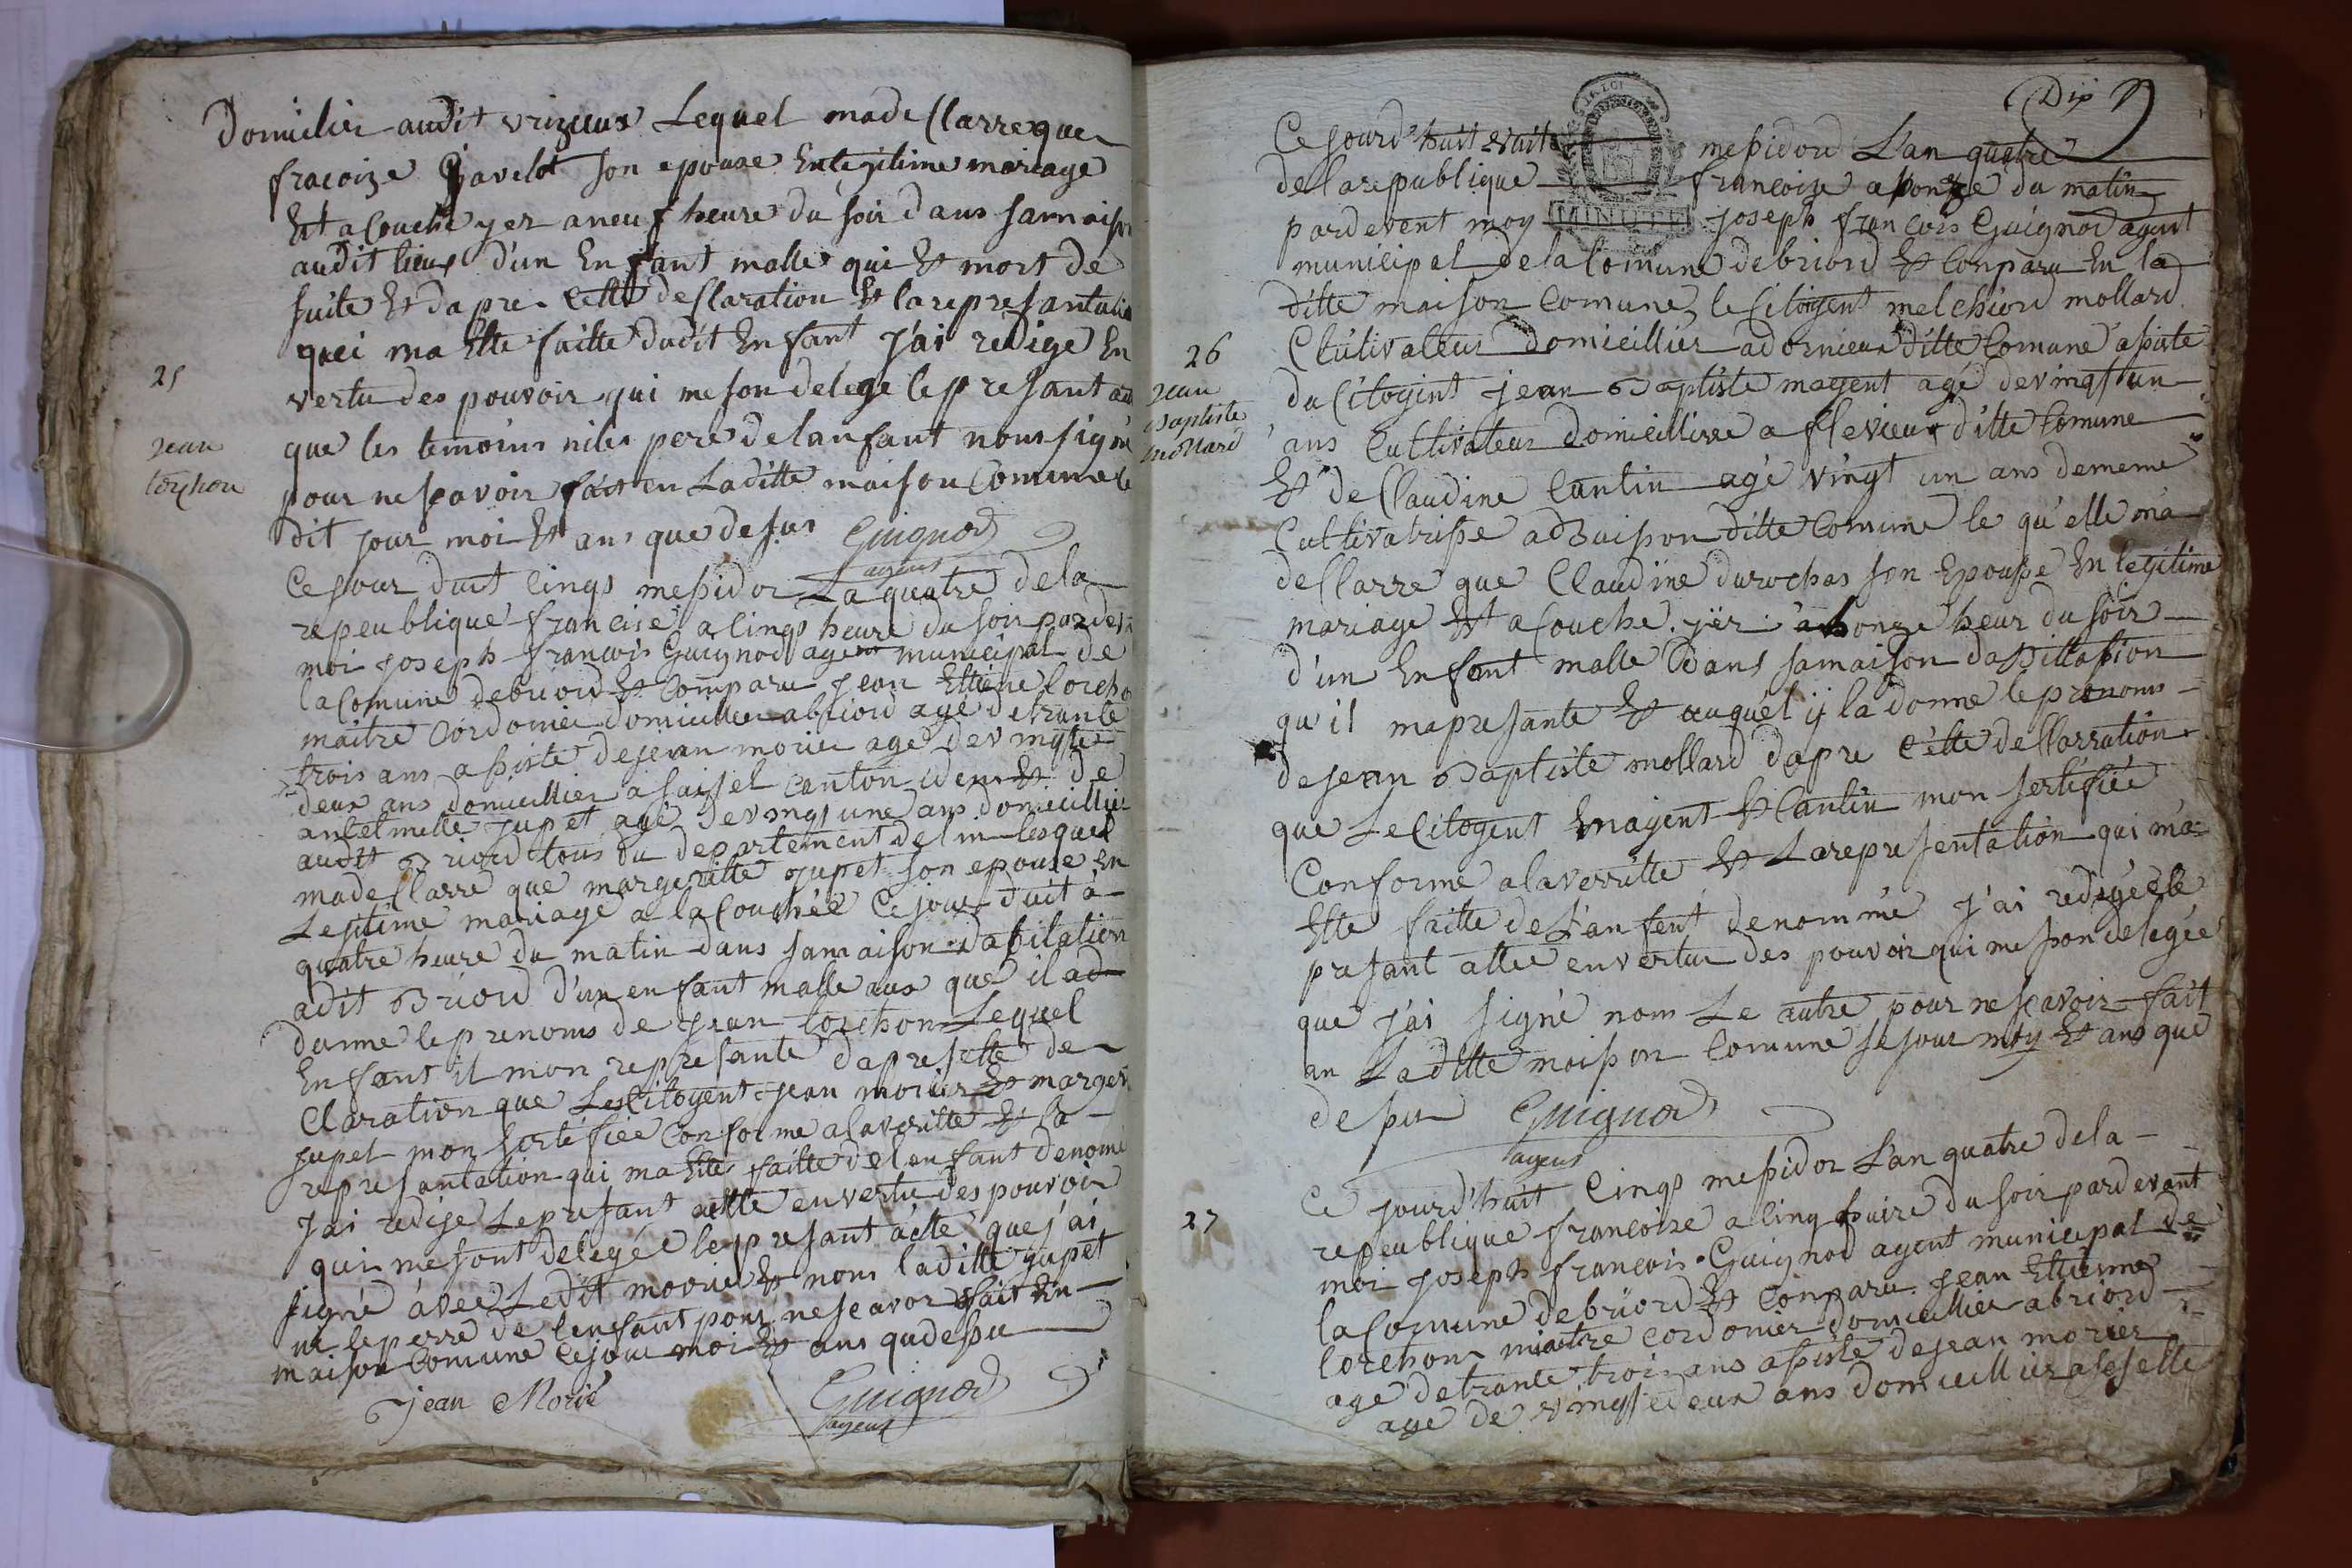 domicilier audit vrizieux Lequel made Clarre que
fracoize Gavelot son epouze En legitime mariage
Et a Couche yer a neuf heure du soir dans sa maison
audit lieux d'un Enfant malle qui Et mort de
suite Et dapre Cette desClaration Et la represantation
quei ma Ette faitte dudit Enfant j'ai redige En
25
vertu des pouvoir qui me son delege le presant acte
jean
torchon
que les temoins niles pere delanfant nous signé
pour ne scavoir fait en Laditte maison Comune le
dit jour moi Et ans que desus Guignod
agent
Ce jour duit Cinqs messidor La quatre dela
repeublique francise a Cinqs heure du soir pardev
moi joseph francois Guignod agent municipal de
la Comune debriord Et Comparu jean Ettiene Lorcho
maitre Cordonier domicillier abriord age detrante
trois ans assiste dejean morier age devingte
deux ans domicillier a saissel canton idem Et de
antelmelle jupet age devingt une ans domicillier
audit Briord tous du departement del in lesquel
made Clarre que margeritte jupet son epouse en
Legitime mariage a la Couchée Ce jour duit à
quatre heure du matin dans samaison dabitation
adit Briord d'un enfant malle aux que il ad
donne le prenoms de jean torchon Lequel
Enfant il mon represante dapre sette de
Claration que Les Citoyent jean morier Et marger
jupet mon sertifiée Conforme alaveritte Et la
represantation qui ma Ette faitte del enfant denome
j'ai redije Le presant actte en vertu des pouvoir
qui me sont delegée le presant acte que j'ai
signé avec Ledit morier Et nom laditte jupet
ni le perre de l'enfant pour ne scavor fait En
maison Comune Ce jour moi Et ans qu desu
jean Morié Guignod
agent
Dix
Ce jourd'huit vuite messidord L'an quatre
de la republique francoize a honze du matin
pardevent moy MINUTE joseph francois Guignod agent
municipel de la Comune debriord Et Conparu En la
ditte maison Comune le Citoyent melchiord mollard
26
Clutivateur domicillier adornieux ditte Comune assiste
jean
Baptiste
mollard
du Citoyint jean Baptiste magent agé devingt un
ans Cultivateur domicillier a flevieux ditte Comune
Et de Claudine Cantin agé vingt un ans dememe
Cultivatrisse a Buisson ditte Comune le qu'elle m'a
desClarre que Claudine durochas son Epousse En legitime
mariage Et a Couche yer a honze heur du soir
d'un Enfant malle dans samaison daBittassion
qu'il mapresante Et auquel ij la donne le prenoms
de jean Baptiste mollard dapre Cette desClarration
que Le Citoyent magent Et Cantin mon sertifiée
Conforme alaverritte Et La represéntation qui m'a
Ette faitte de L'anfent denommé j'ai redigée le
presant actte en vertu des pouvoir qui me son delegée
que j'ai signé nom Le autre pour ne scavoir fait
an Laditte maison Comune se jour moy Et ans que
desus Guignod
agent
27
Ce jourd'huit Cinqs messidor L'an quatre dela
repeublique francoize a Cinq huire du soir pardevant
moi joseph francois Guignod agent municipal de
la Comune debriord Et Conparu jean Ettienne
Lorchon miaitre Cordonier domicillier abriord
age detrante trois ans assiste dejean morier
age de vingtedeux ans domicillier asesselle